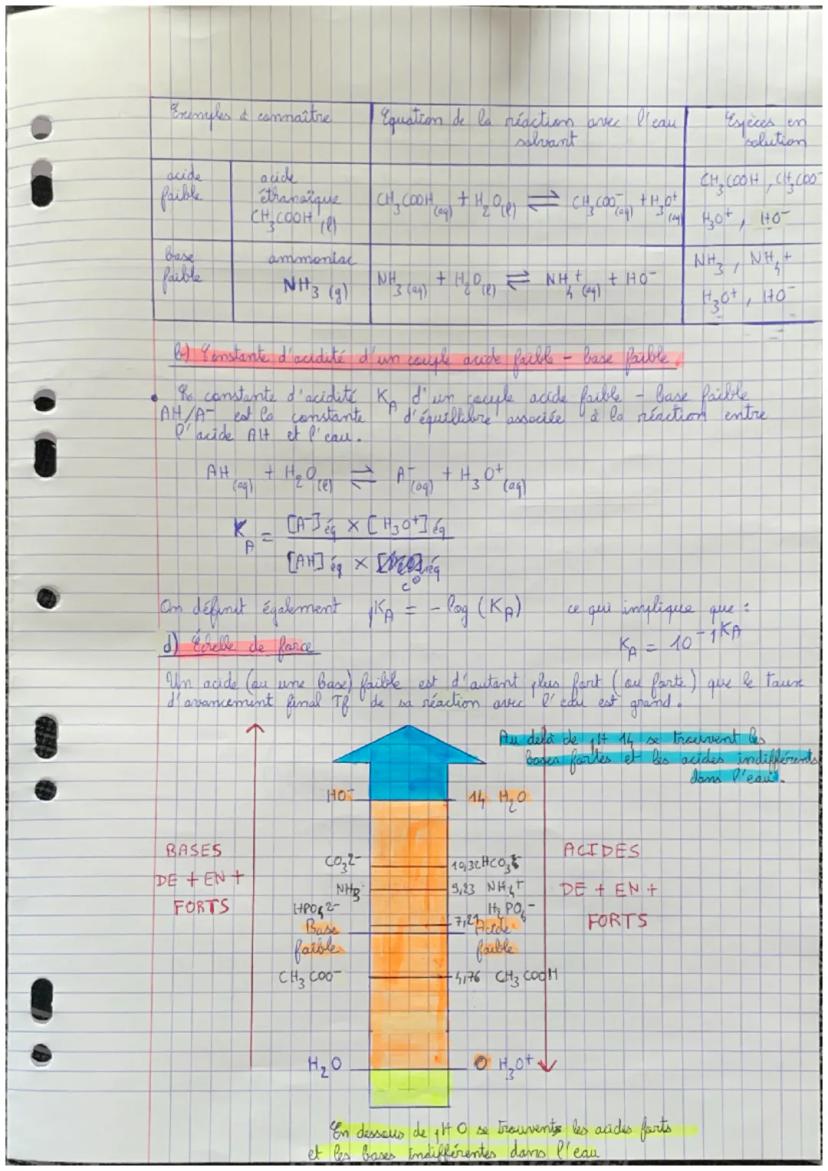 Exemples à connaître | Equation de la réaction avec l'eau solvant | Espèces en solution
acide faible | acide éthanoïque CH₃COOH (l) | CH₃COOH (aq) + H₂O (l) ⇌ CH₃COO⁻ (aq) + H₃O⁺ (aq) | CH₃COOH, CH₃COO⁻ H₃O⁺, HO⁻
base faible | ammoniac NH₃ (g) | NH₃ (aq) + H₂O (l) ⇌ NH₄⁺ (aq) + HO⁻ | NH₃, NH₄⁺ H₃O⁺, HO⁻
b) Constante d'acidité d'un couple acide faible - base faible
• La constante d'acidité K_A d'un couple acide faible - base faible
AH/A⁻ est la constante d'équilibre associée à la réaction entre
l'acide AH et l'eau.
AH (aq) + H₂O (l) ⇌ A⁻ (aq) + H₃O⁺ (aq)
K_A = [A⁻]éq × [H₃O⁺]éq
[AH]éq × c°
On définit également pK_A = - log (K_A) ce qui implique que :
K_A = 10^-pKA
d) Échelle de force
Un acide (ou une base) faible est d'autant plus fort (ou forte) que le taux
d'avancement final τf de sa réaction avec l'eau est grand.
Au delà de pH 14 se trouvent les
bases fortes et les acides indifférents
dans l'eau.
HO⁻ 14 H₂O
BASES
DE + EN +
FORTS
CO₃²⁻ 10,32 HCO₃⁻
NH₃ 9,23 NH₄⁺
HPO₄²⁻ 7,21 H₂PO₄⁻
Base faible
Acide faible
CH₃COO⁻ 4,76 CH₃COOH
ACIDES
DE + EN +
FORTS
H₂O 0 H₃O⁺
En dessous de pH 0 se trouvent les acides forts
et les bases indifférentes dans l'eau